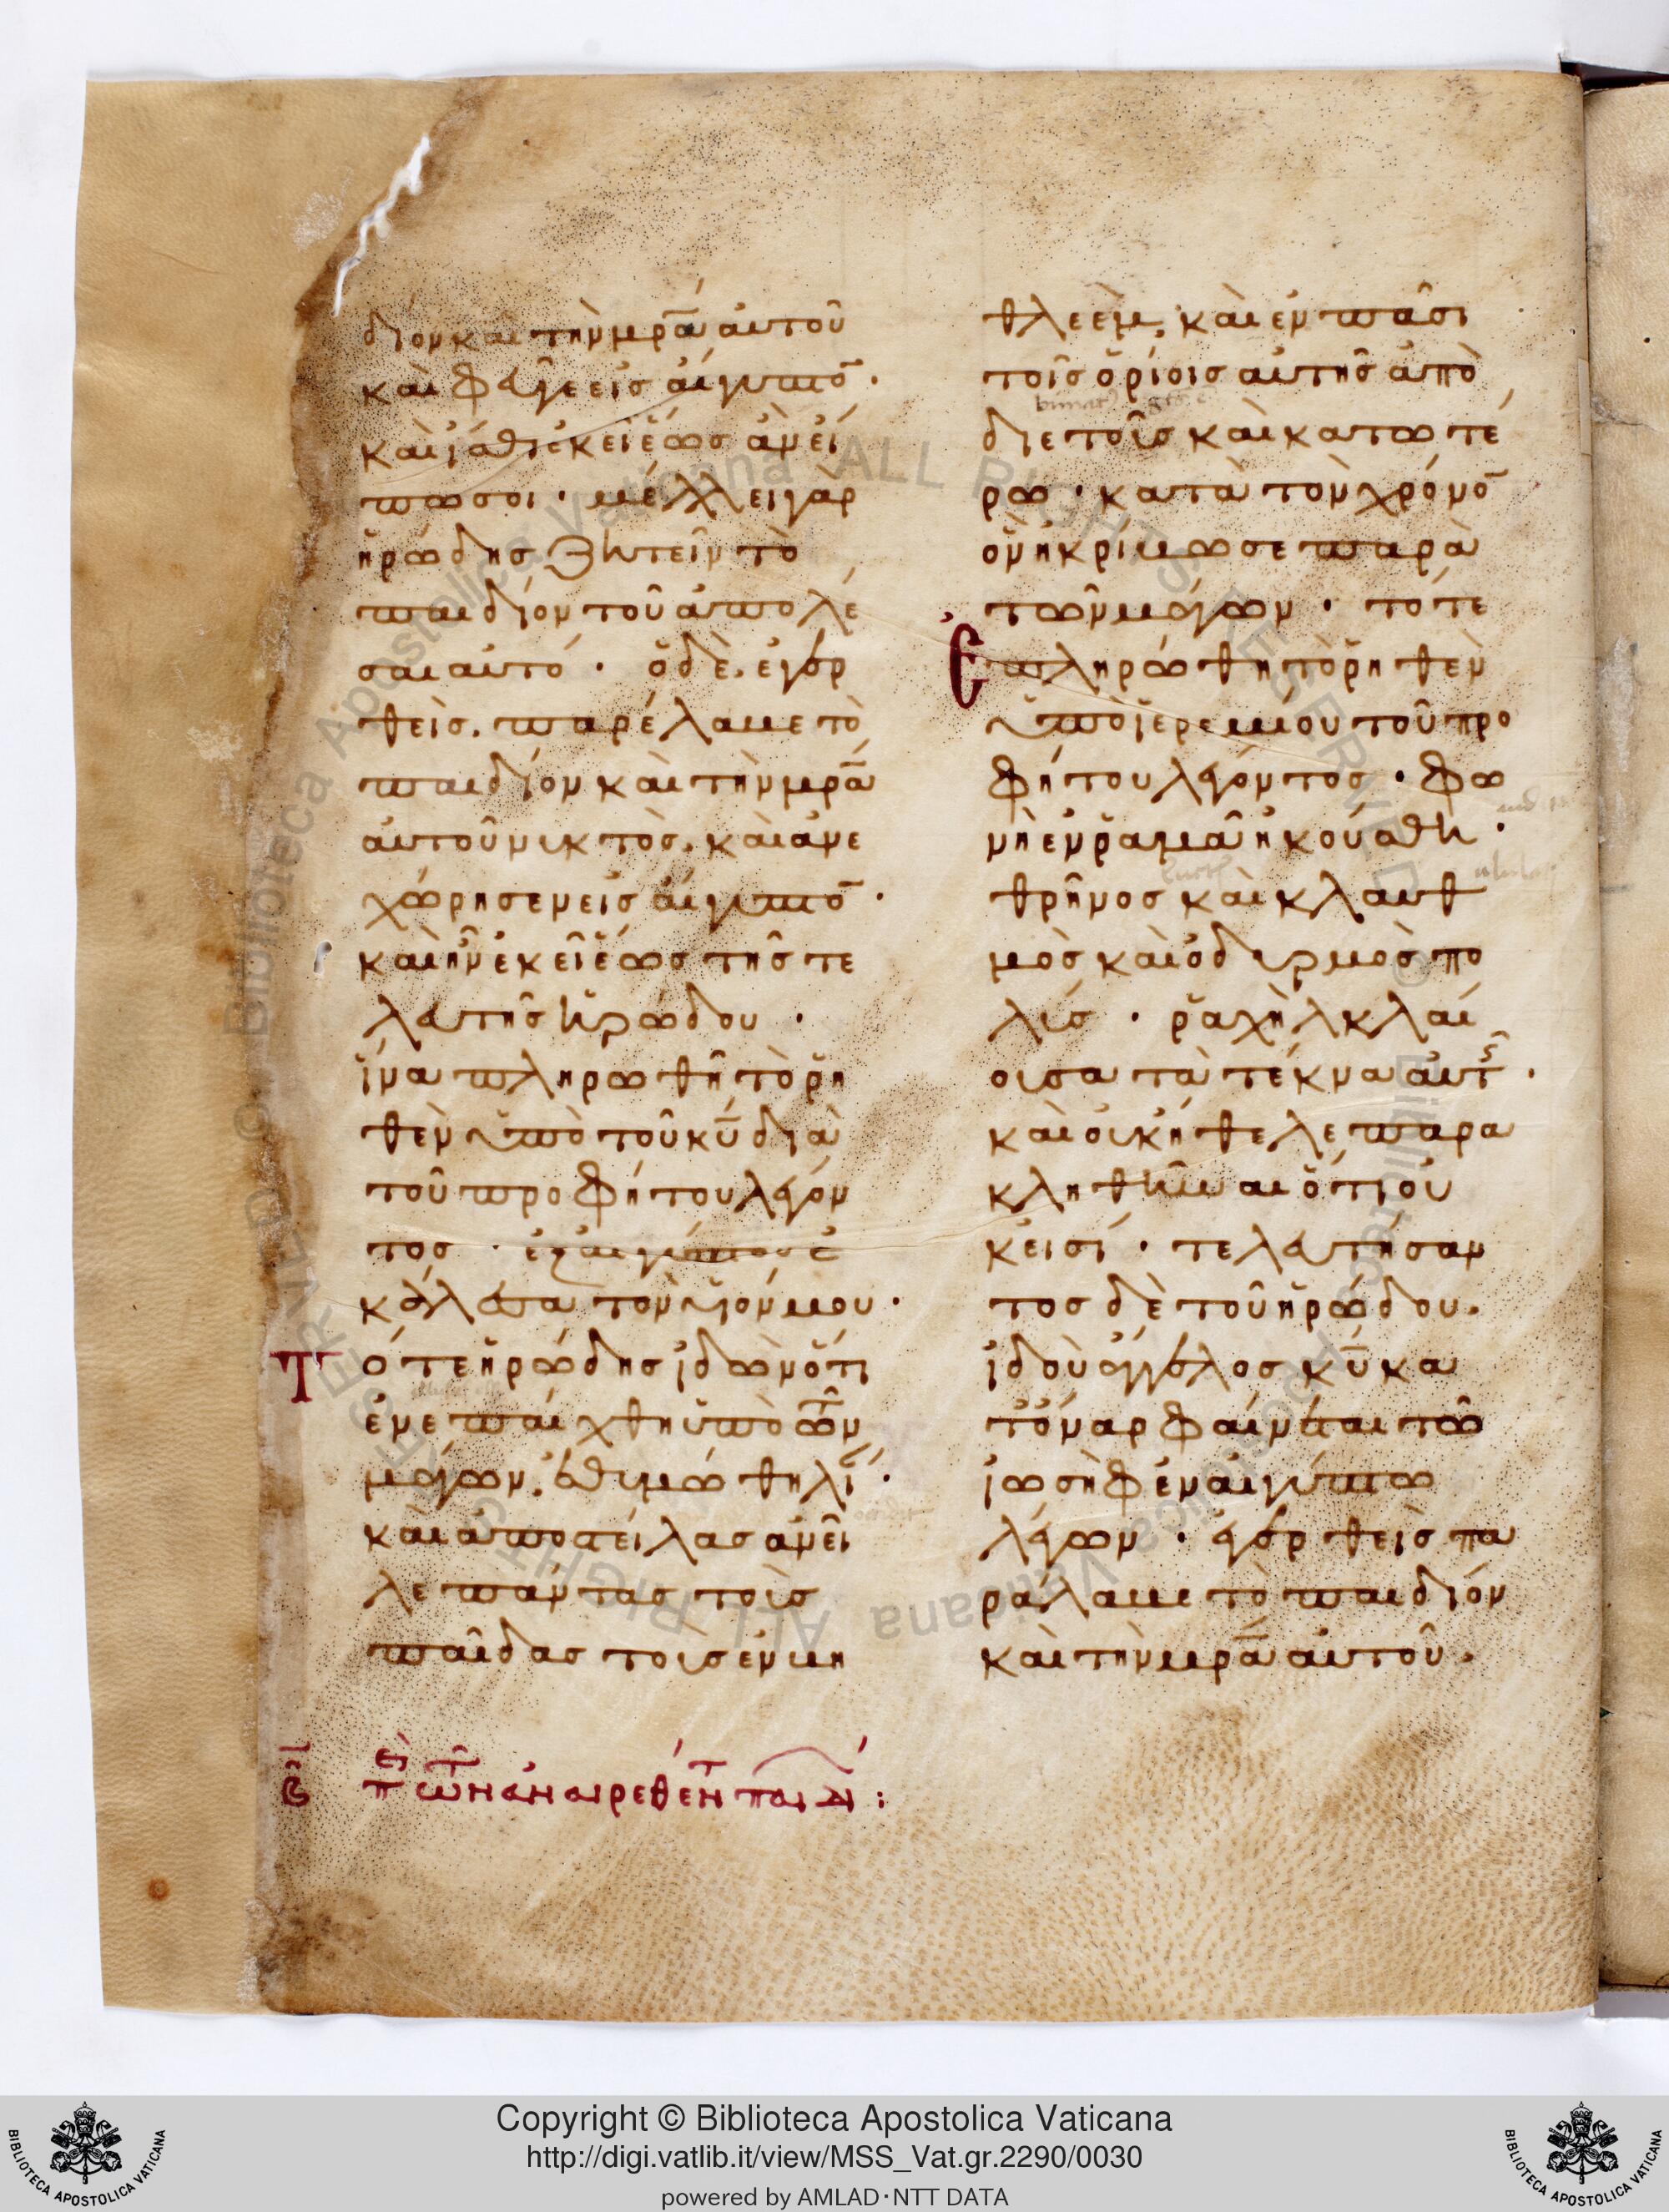 διον καὶ τὴν μρ̅α αὐτοῦ
καὶ φεῦγε εἰς αἴγυπτο̅ ·
καὶ ἴσθι ἐκεῖ ἕως ἂν εἴ
πω σοι · μέλλει γὰρ
ἡρώδης ζητεῖν τὸ
παιδίον τοῦ ἀπολέ
σαι αὐτό · ὁ δὲ, ἐγερ
θεὶς, παρέλαβε τὸ
παιδίον καὶ τὴν μρ̅α
αὐτοῦ νυκτὸς, καὶ ἀνε
χώρησεν εἰς αἴγυπτο̅ ·
καὶ ἦν ἐκεῖ ἕως τῆς τε
λευτῆς ἡρώδου ·
ἵνα πληρωθῆ τὸ ῥη
θὲν ὑπὸ τοῦ κ̅υ διὰ
τοῦ προφήτου λέγον
τος · ἐξ αἰγύπτου ἐ
κάλεσα τὸν υἱόν μου ·
Τότε ἡρώδης ἰδὼν ὅτι
ἐνεπαίχθη ὑπὸ τῶν
μάγων, ἐθυμώθη λί̅ ·
καὶ ἀποστείλας ἀνεῖ
λε πάντας τοὺς
παῖδας τοὺς ἐν βη
β̅ εἰ π τῶν ἀναιρεθέντ παιδί :
θλεὲμ, καὶ ἐν πᾶσι
τοῖς ὁρίοις αὐτῆς ἀπὸ
διετοῦς καὶ κατωτέ
ρω · κατὰ τὸν χρόνο̅
ὃν ἠκρίβωσε παρὰ
τῶν μάγων · τότε
Ἐπληρώθη τὸ ῥηθὲν
ὑπὸ ἱερεμίου τοῦ προ
φήτου λέγοντος · φω
νὴ ἐν ῥαμᾶ ἠκούσθη ·
θρῆνος καὶ κλαυθ
μὸς καὶ ὀδυρμὸς πο
λύς · ῥαχὴλ κλαί
ουσα τὰ τέκνα αὑτῆς ·
καὶ οὐκ ἤθελε παρα
κληθῆναι ὅτι οὐ
κ εἰσί · τελευτήσαν
τος δὲ τοῦ ἡρώδου,
ἰδοὺ ἄγγελος κ̅υ κα
τ' ὄναρ φαίνεται τῶ
ἰωσὴφ ἐν αἰγύπτω
λέγων · ἐγερθεὶς πα
ράλαβε τὸ παιδίον
καὶ τὴν μρ̅α αὐτοῦ,
Copyright © Biblioteca Apostolica Vaticana
http://digi.vatlib.it/view/MSS_Vat.gr.2290/0030
powered by AMLAD · NTT DATA
BIBLIOTECA APOSTOLICA VATICANA
BIBLIOTECA APOSTOLICA VATICANA